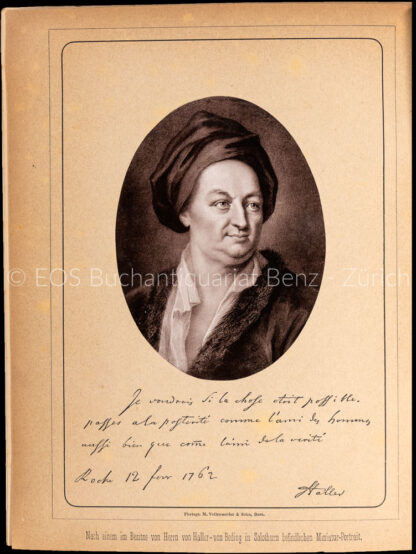 © EOS Buchantiquariat Benz, Zürich
Je voudrois si la chose etoit possible.
passer a la posterité comme l'ami des hommes
aussi bien que come l'ami de la verité
Roche 12 fevr 1762
Haller
Photogr. M. Vollenweider & Sohn, Bern.
Nach einem im Besitze von Herrn von Haller-von Reding in Solothurn befindlichen Miniatur-Portrait.